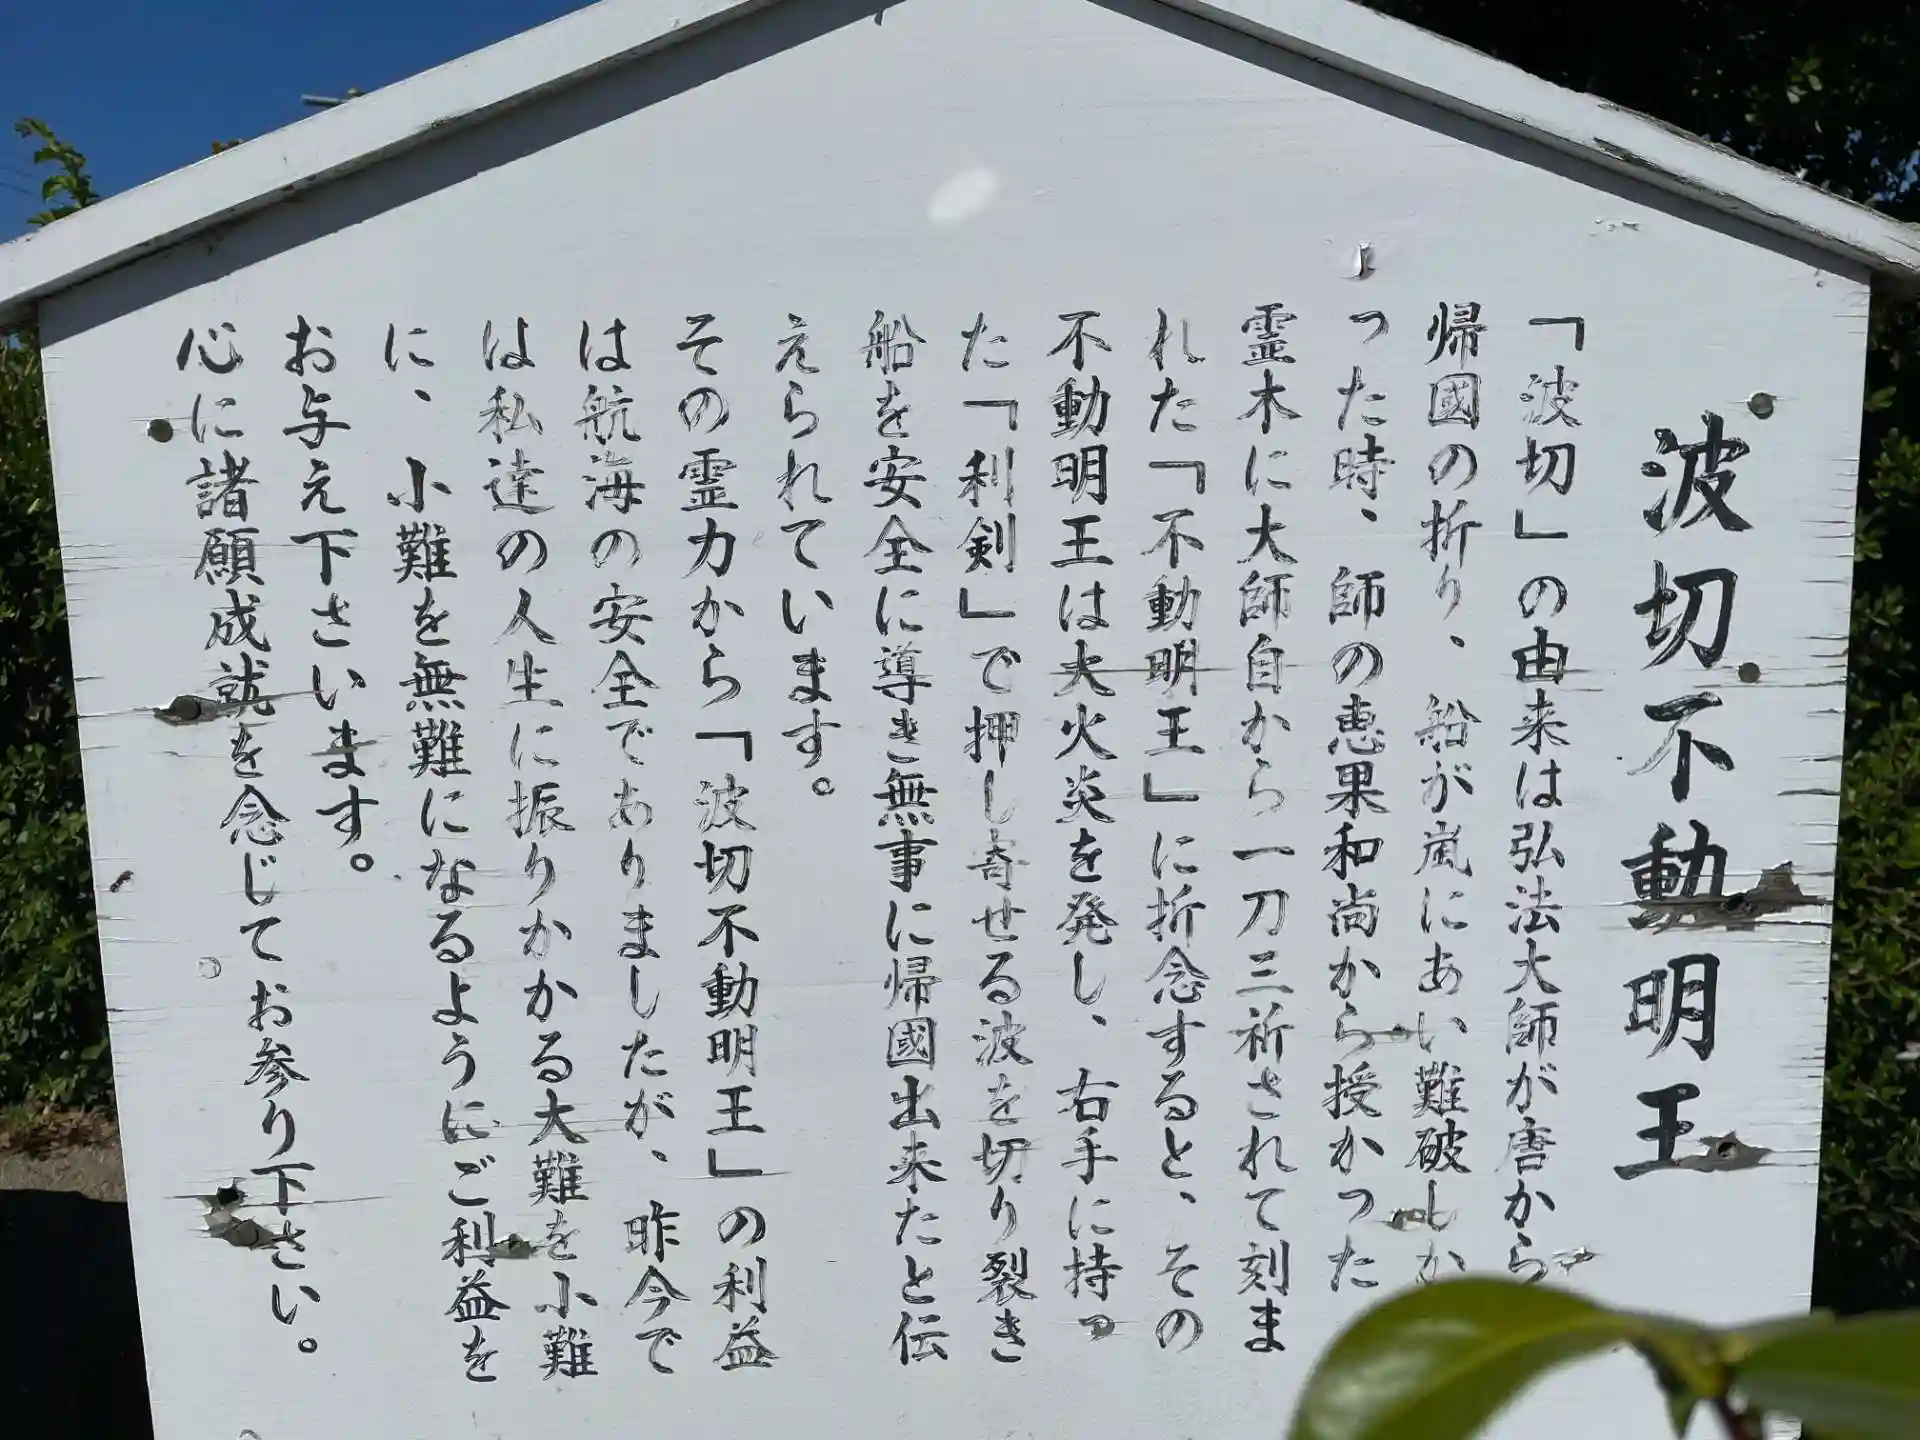 波切不動明王
「波切」の由来は弘法大師が唐から
帰國の折り、船が嵐にあい難破しか
った時、師の恵果和尚から授かった
霊木に大師自から一刀三祈されて刻ま
れた「不動明王」に折念すると、その
不動明王は大火炎を発し、右手に持っ
た「利剣」で押し寄せる波を切り裂き
船を安全に導き無事に帰國出来たと伝
えられています。
その霊力から「波切不動明王」の利益
は航海の安全でありましたが、昨今で
は私達の人生に振りかかる大難を小難
に、小難を無難になるようにご利益を
お与え下さいます。
心に諸願成就を念じてお参り下さい。